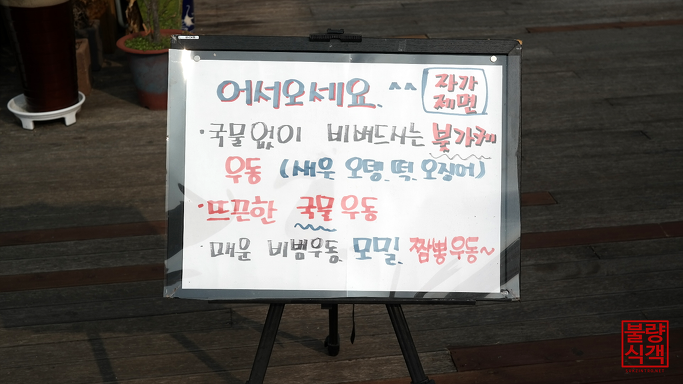 어서오세요. ^^
자가
제면
· 국물없이 비벼드시는 붓가케
우동 (새우, 오뎅, 떡, 오징어)
· 뜨끈한 국물우동
· 매운 비빔우동, 모밀, 짬뽕우동~
불량
식객